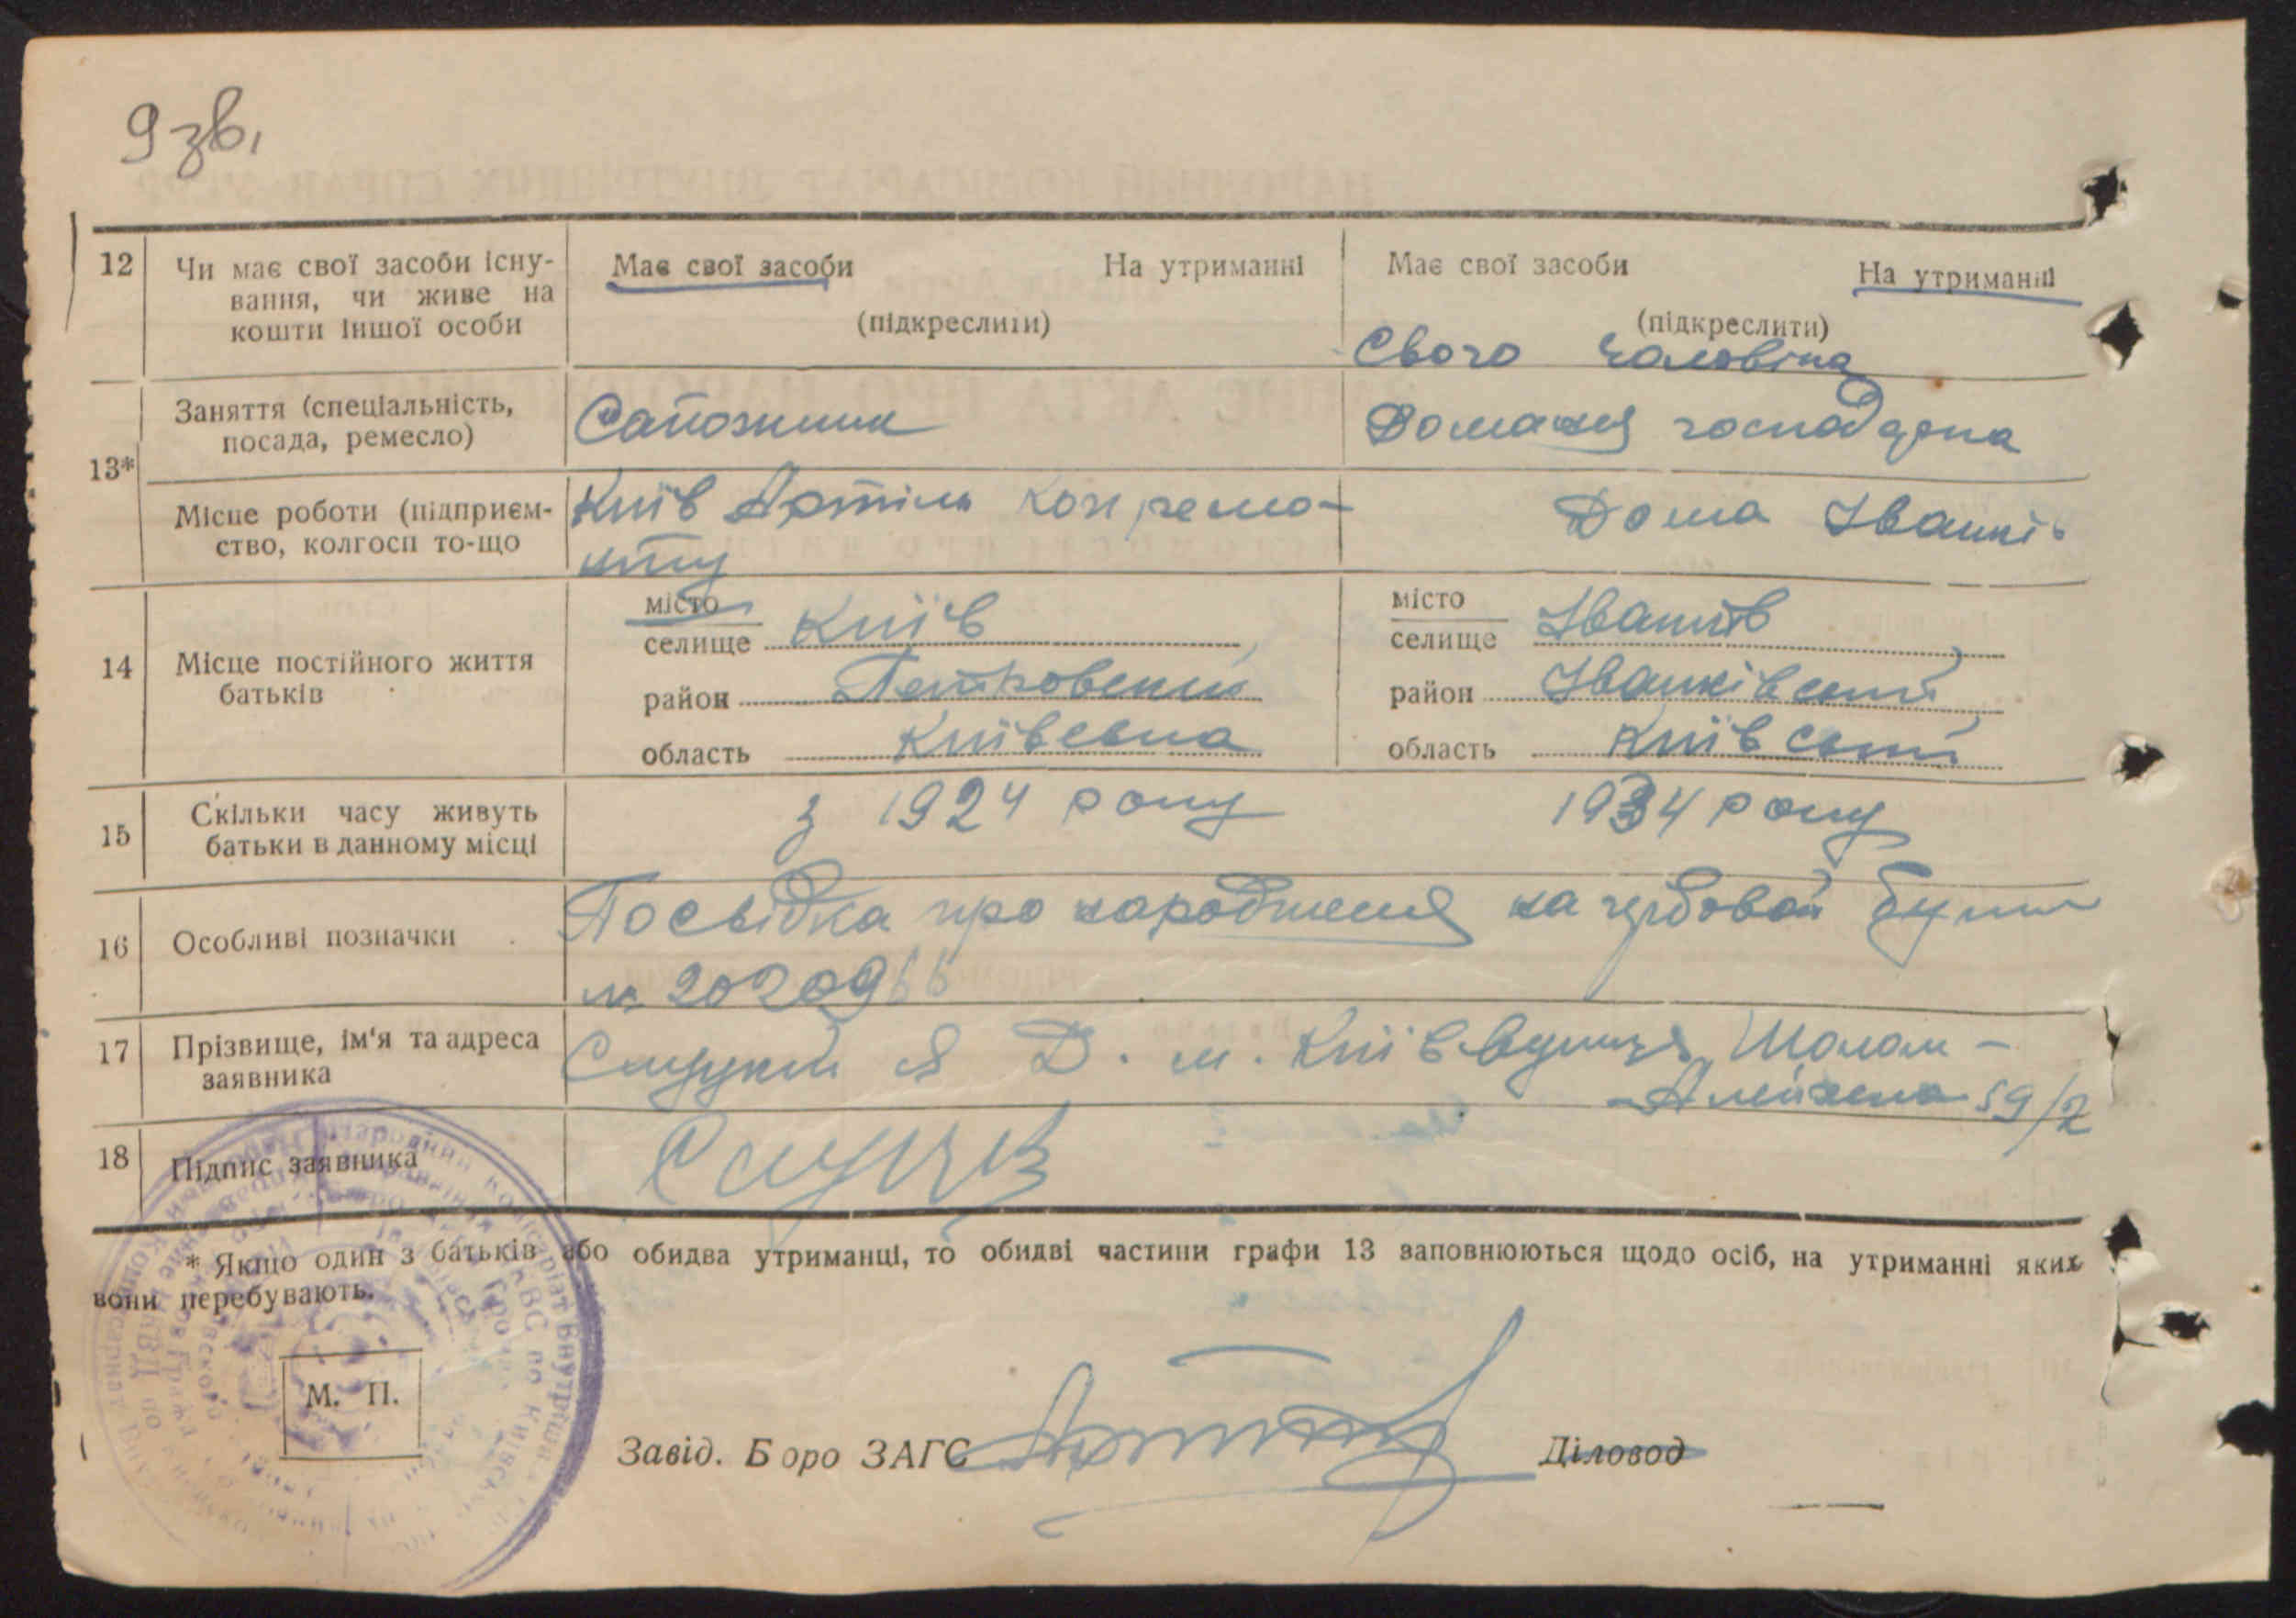 9 зв.
12 Чи має свої засоби існу-
вання, чи живе на
кошти іншої особи
Має свої засоби На утриманні
(підкреслити)
Має свої засоби На утриманні
(підкреслити)
Свого чоловіка
13*
Заняття (спеціальність,
посада, ремесло)
Сапожник
Домашня господарка
Місце роботи (підприєм-
ство, колгосп то-що
Київ Артіль
Дома Іванків
14 Місце постійного життя
батьків
місто
селище Київ
район Петровский
область Київська
місто
селище Іванків
район Іванківский
область Київский
15 Скільки часу живуть
батьки в данному місці
з 1924 року
1934 року
16 Особливі позначки
Посвідка про народження на гербовой
№ 2020966
17 Прізвище, ім'я та адреса
заявника
Слуцкий Я Д. м. Київ вулиця Шолом-
Алейхема 59/2
18 Підпис заявника
* Якщо один з батьків або обидва утриманці, то обидві частини графи 13 заповнюються щодо осіб, на утриманні яких
вони перебувають.
М. П.
Завід. Бюро ЗАГС
Діловод